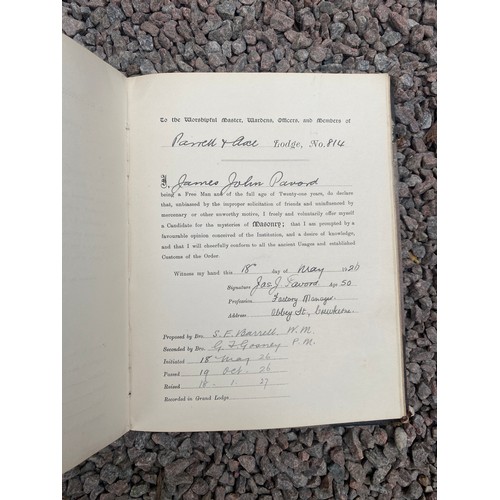 To the Worshipful Master, Wardens, Officers, and Members of
Parrett & Axe Lodge, No. 814
I, James John Pavord
being a Free Man and of the full age of Twenty-one years, do declare
that, unbiassed by the improper solicitation of friends and uninfluenced by
mercenary or other unworthy motive, I freely and voluntarily offer myself
a Candidate for the mysteries of Masonry; that I am prompted by a
favourable opinion conceived of the Institution, and a desire of knowledge,
and that I will cheerfully conform to all the ancient Usages and established
Customs of the Order.
Witness my hand this 18th day of May 1926
Signature Jas J. Pavord Age 50
Profession Factory Manager
Address Abbey St, Crewkerne
Proposed by Bro. S. E. Barrell W.M.
Seconded by Bro. P.M.
Initiated 18 May 26
Passed 19 Oct 26
Raised 18 . 1 . 27
Recorded in Grand Lodge